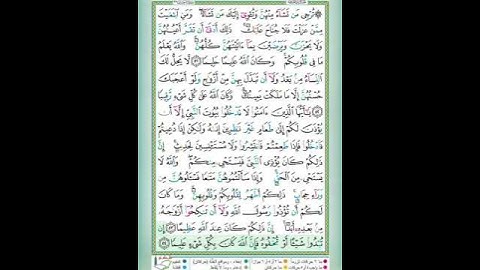 ۞ تُرْجِي مَن تَشَآءُ مِنْهُنَّ وَتُـْٔوِىٓ إِلَيْكَ مَن تَشَآءُ ۖ وَمَنِ ٱبْتَغَيْتَ
مِمَّنْ عَزَلْتَ فَلَا جُنَاحَ عَلَيْكَ ۚ ذَٰلِكَ أَدْنَىٰٓ أَن تَقَرَّ أَعْيُنُهُنَّ
وَلَا يَحْزَنَّ وَيَرْضَيْنَ بِمَآ ءَاتَيْتَهُنَّ كُلُّهُنَّ ۚ وَٱللَّهُ يَعْلَمُ
مَا فِي قُلُوبِكُمْ ۚ وَكَانَ ٱللَّهُ عَلِيمًا حَلِيمًا ٥١ لَّا يَحِلُّ لَكَ
ٱلنِّسَآءُ مِنۢ بَعْدُ وَلَآ أَن تَبَدَّلَ بِهِنَّ مِنْ أَزْوَٰجٍ وَلَوْ أَعْجَبَكَ
حُسْنُهُنَّ إِلَّا مَا مَلَكَتْ يَمِينُكَ ۗ وَكَانَ ٱللَّهُ عَلَىٰ كُلِّ شَىْءٍ رَّقِيبًا
٥٢ يَٰٓأَيُّهَا ٱلَّذِينَ ءَامَنُوا۟ لَا تَدْخُلُوا۟ بُيُوتَ ٱلنَّبِىِّ إِلَّآ أَن
يُؤْذَنَ لَكُمْ إِلَىٰ طَعَامٍ غَيْرَ نَٰظِرِينَ إِنَىٰهُ وَلَٰكِنْ إِذَا دُعِيتُمْ
فَٱدْخُلُوا۟ فَإِذَا طَعِمْتُمْ فَٱنتَشِرُوا۟ وَلَا مُسْتَـْٔنِسِينَ لِحَدِيثٍ ۚ إِنَّ
ذَٰلِكُمْ كَانَ يُؤْذِى ٱلنَّبِىَّ فَيَسْتَحْىِۦ مِنكُمْ ۖ وَٱللَّهُ لَا
يَسْتَحْىِۦ مِنَ ٱلْحَقِّ ۚ وَإِذَا سَأَلْتُمُوهُنَّ مَتَٰعًا فَسْـَٔلُوهُنَّ مِن
وَرَآءِ حِجَابٍ ۚ ذَٰلِكُمْ أَطْهَرُ لِقُلُوبِكُمْ وَقُلُوبِهِنَّ ۚ وَمَا كَانَ
لَكُمْ أَن تُؤْذُوا۟ رَسُولَ ٱللَّهِ وَلَآ أَن تَنكِحُوٓا۟ أَزْوَٰجَهُۥ
مِنۢ بَعْدِهِۦٓ أَبَدًا ۚ إِنَّ ذَٰلِكُمْ كَانَ عِندَ ٱللَّهِ عَظِيمًا ٥٣ إِن
تُبْدُوا۟ شَيْـًٔا أَوْ تُخْفُوهُ فَإِنَّ ٱللَّهَ كَانَ بِكُلِّ شَىْءٍ عَلِيمًا ٥٤